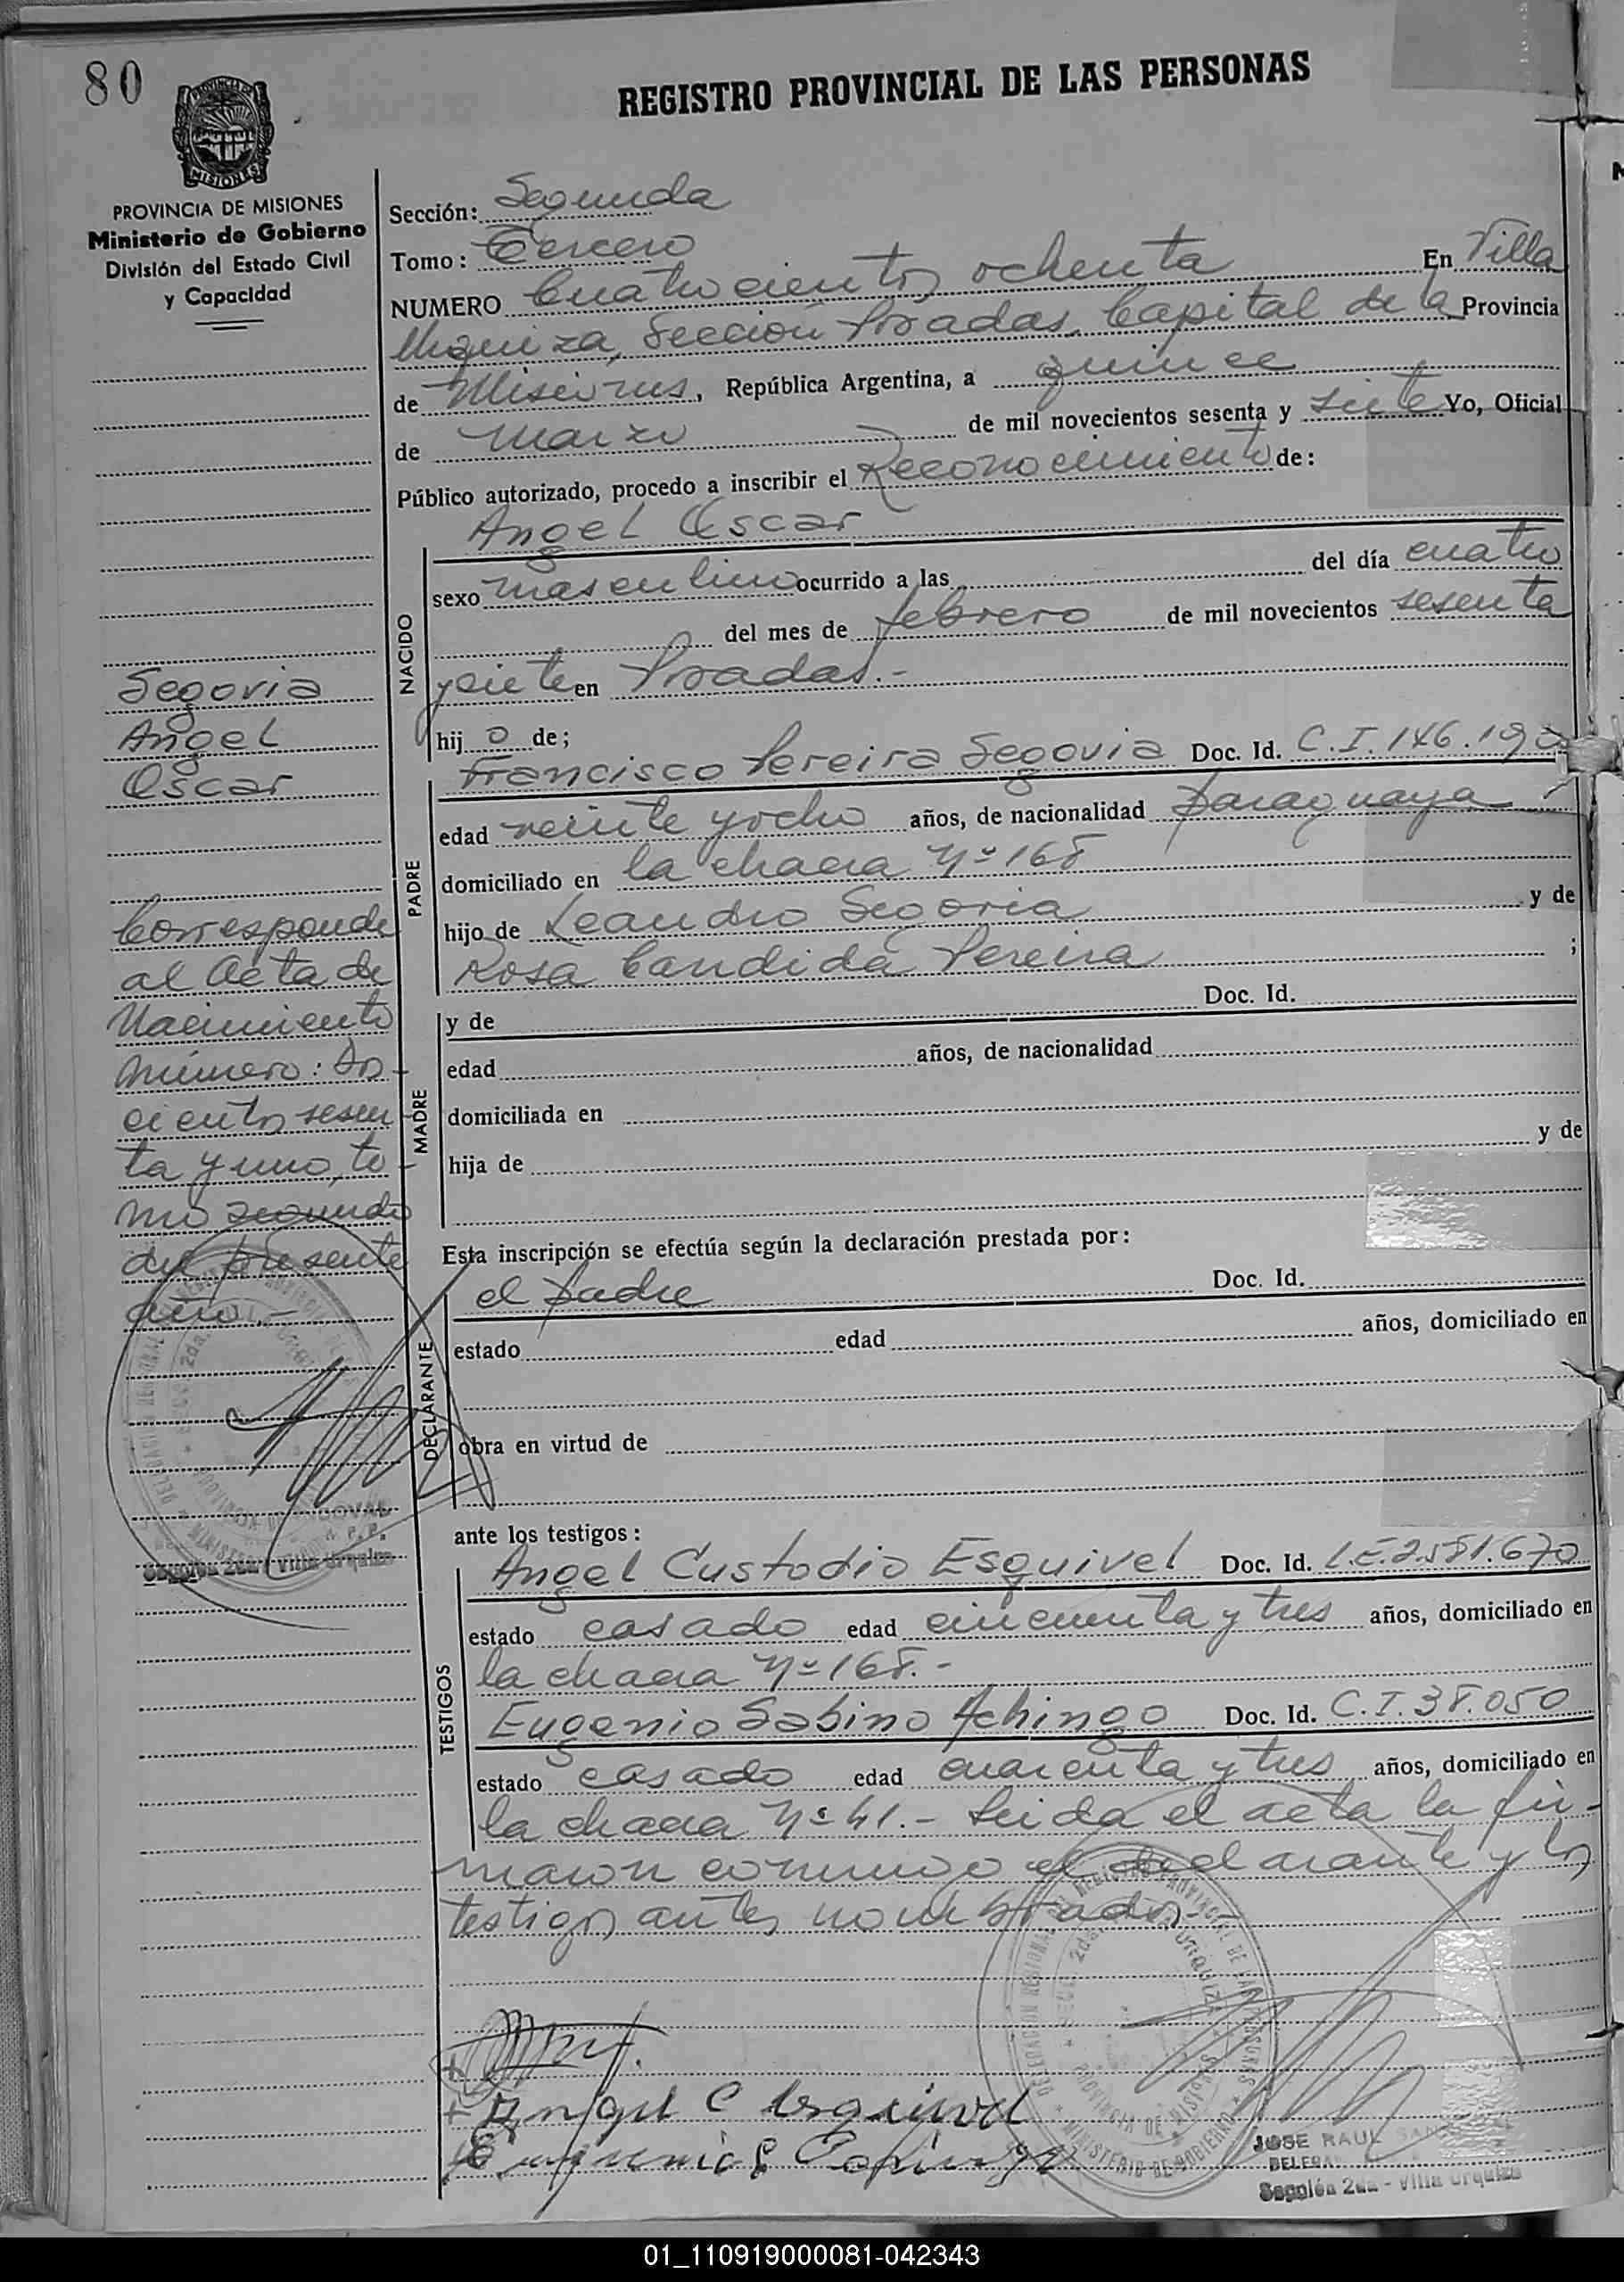 80
REGISTRO PROVINCIAL DE LAS PERSONAS
MISIONES
PROVINCIA DE MISIONES
Ministerio de Gobierno
División del Estado Civil
y Capacidad
Sección: Segunda
Tomo: Tercero
NUMERO Cuatrocientos ochenta En Villa
Urquiza, Sección Posadas, Capital de la Provincia
de Misiones, República Argentina, a quince
de marzo de mil novecientos sesenta y siete Yo, Oficial
Público autorizado, procedo a inscribir el Reconocimiento de:
Angel Oscar
NACIDO
sexo masculino ocurrido a las del día cuatro
del mes de febrero de mil novecientos sesenta
y siete en Posadas.-
hij o de;
Segovia
Angel
Oscar
PADRE
Francisco Pereira Segovia Doc. Id. C.I. 146.190
edad veinte y ocho años, de nacionalidad paraguaya
domiciliado en la chacra Nº 168
hijo de Leandro Segovia y de
Rosa Candida Pereira ;
Corresponde
al Acta de
Nacimiento
número: dos-
cientos sesen
ta y uno, to-
mo segundo
del presente
año.-
MADRE
y de Doc. Id.
edad años, de nacionalidad
domiciliada en
hija de y de
Esta inscripción se efectúa según la declaración prestada por:
DECLARANTE
el padre Doc. Id.
estado edad años, domiciliado en
obra en virtud de
Sección 2da - Villa Urquiza
ante los testigos:
TESTIGOS
Angel Custodio Esquivel Doc. Id. L.E. 2.581.670
estado casado edad cincuenta y tres años, domiciliado en
la chacra Nº 168.-
Eugenio Sabino Achingo Doc. Id. C.I. 38.050
estado casado edad cuarenta y tres años, domiciliado en
la chacra Nº 41.- Leida el acta la fir-
maron conmigo el declarante y los
testigos antes nombrados.-
Angel C Esquivel
JOSE RAUL
Sección 2da - Villa Urquiza
01_110919000081-042343